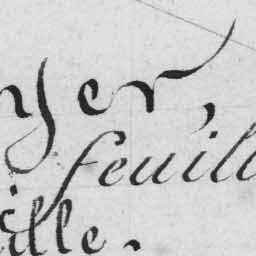 yer,
feuill
ille.